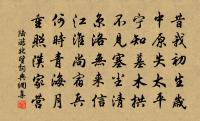 昔我初生歲
中原失太平
寧知墓木拱
不見塞塵清
京洛無來信
江淮尚宿兵
何時青海月
重照漢家營
陸游北望詞典網集